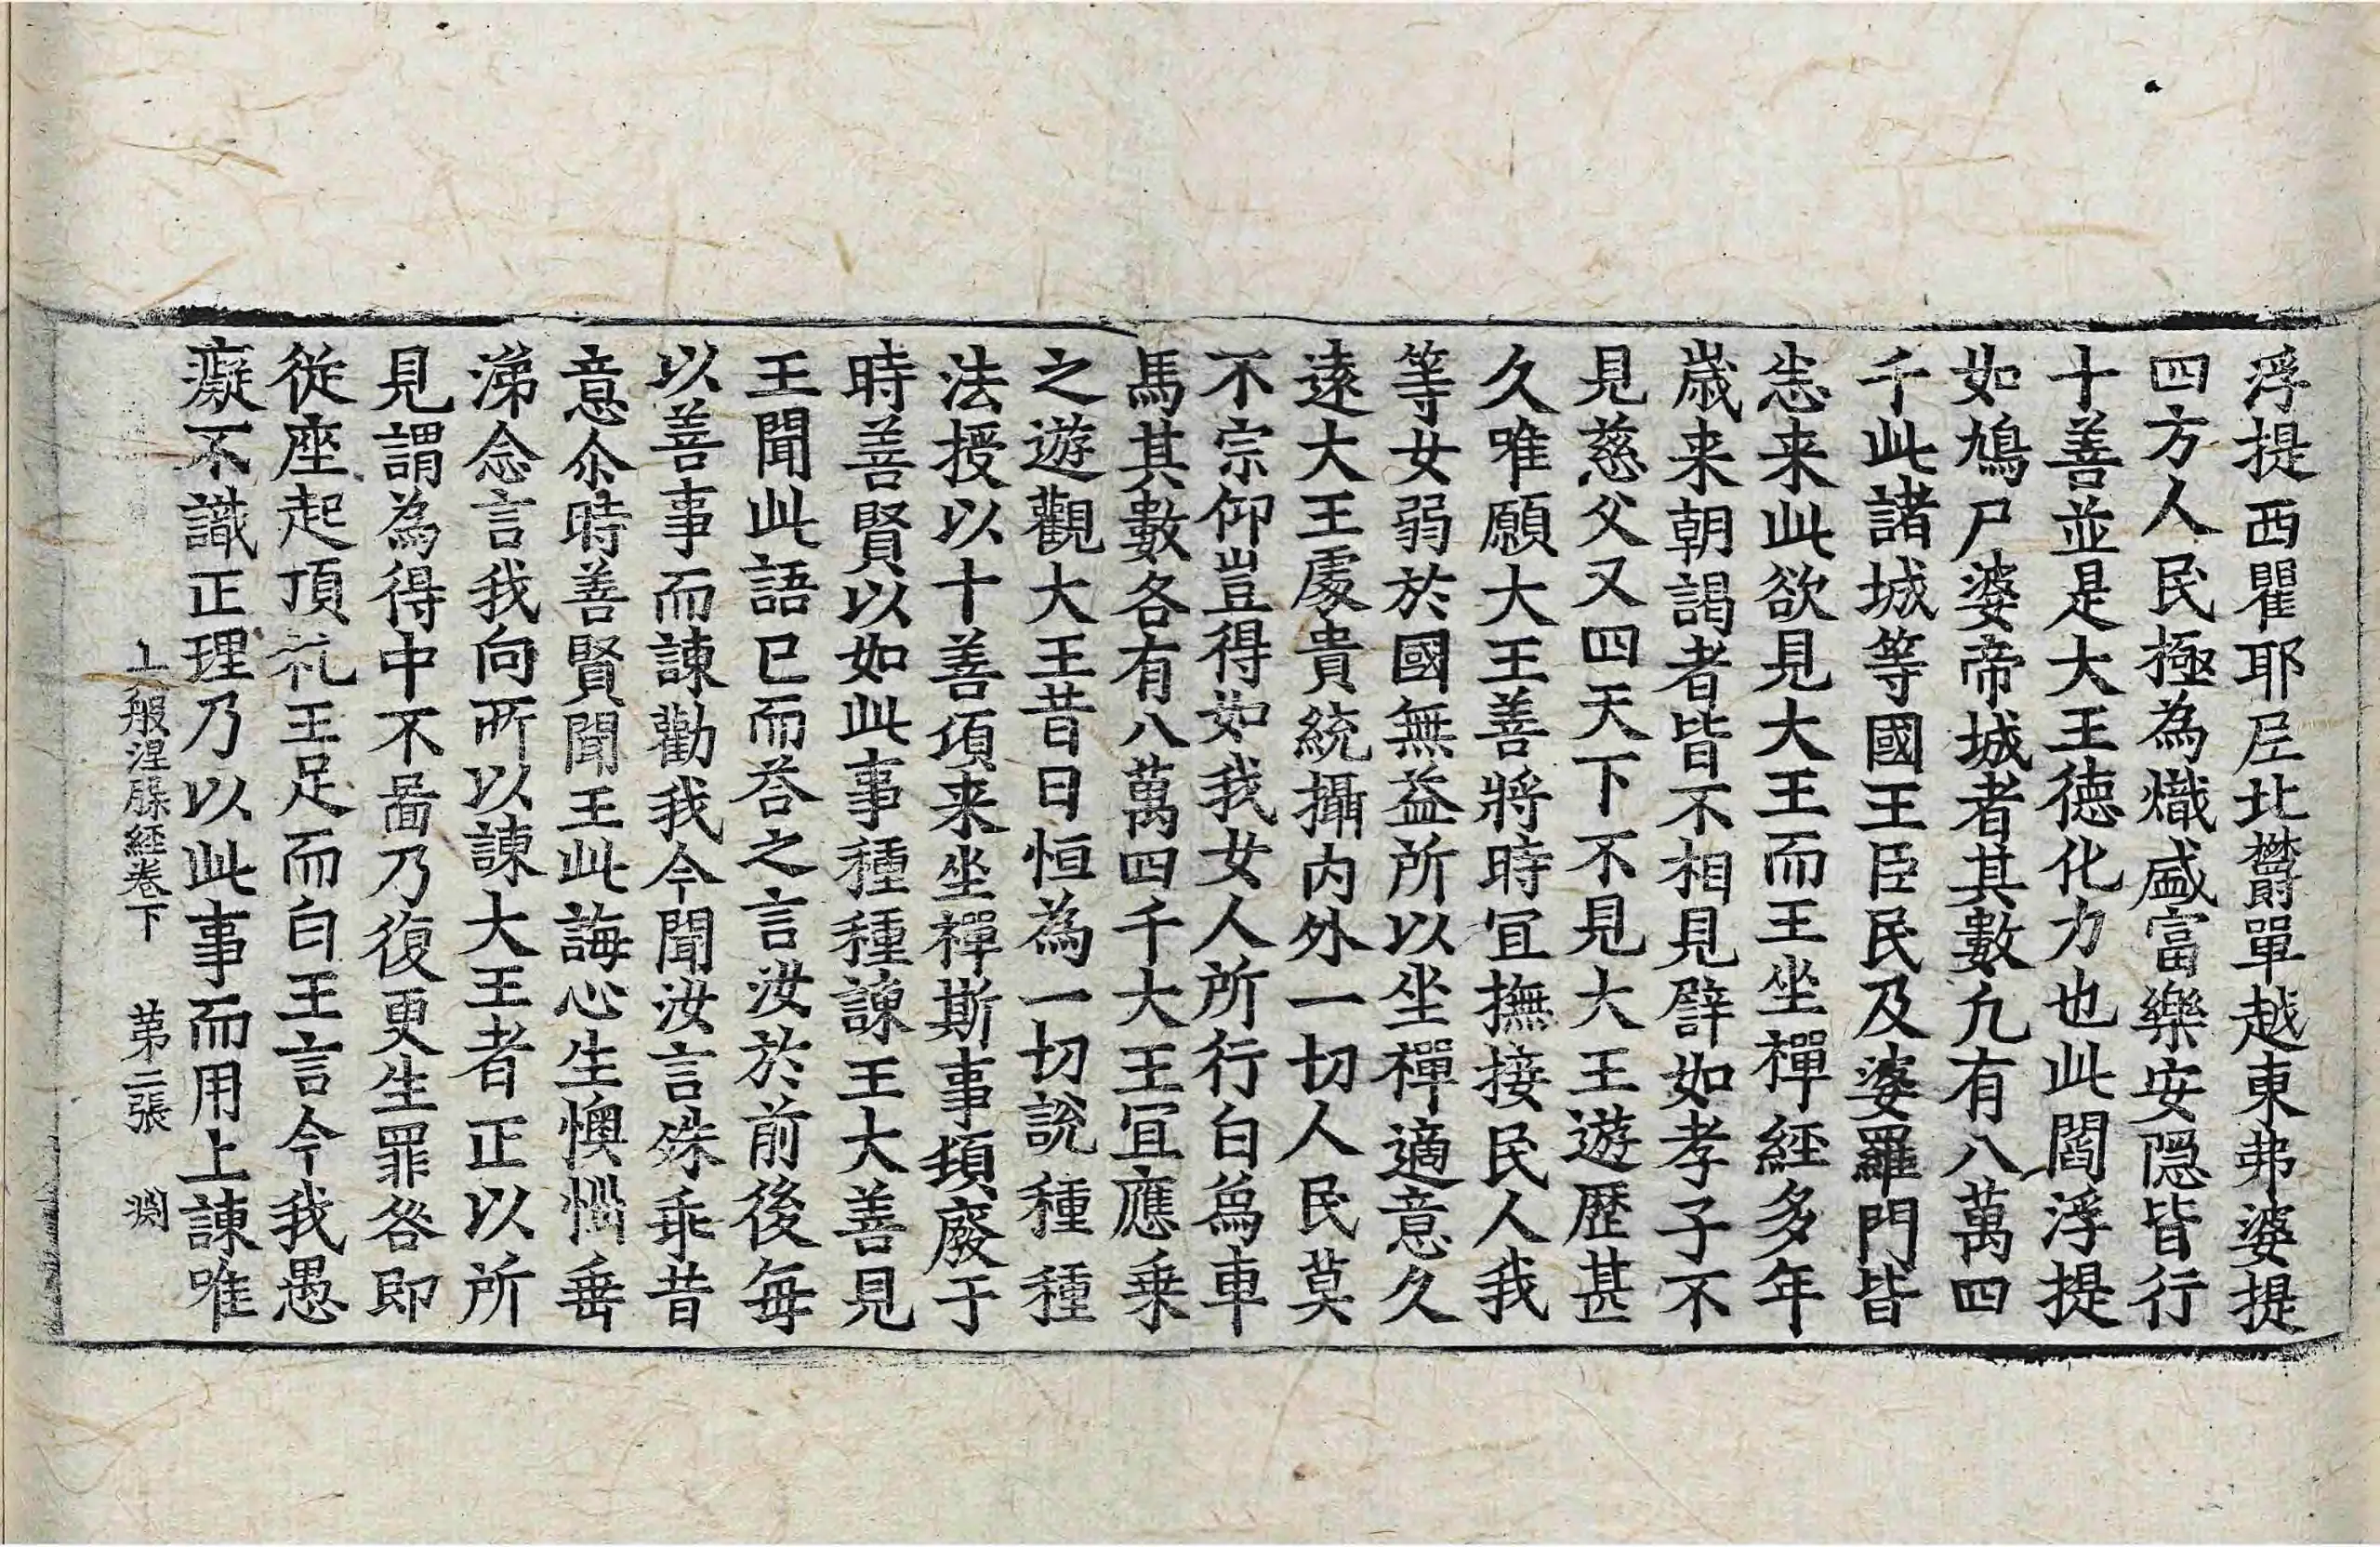 浮提西瞿耶尼北欝單越東弗婆提
四方人民極為熾盛富樂安隠皆行
十善並是大王徳化力也此閻浮提
如鳩尸婆帝城者其數凢有八萬四
千此諸城等國王臣民及婆羅門皆
悉来此欲見大王而王坐禪經多年
歳来朝謁者皆不相見譬如孝子不
見慈父又四天下不見大王遊歷甚
久唯願大王善將時冝撫接民人我
等女弱於國無益所以坐禪適意久
遠大王處貴統攝内外一切人民莫
不宗仰豈得如我女人所行白爲車
馬其數各有八萬四千大王冝應乗
之遊觀大王昔日恒為一切說種種
法授以十善須来坐禪斯事頓廢于
時善賢以如此事種種諫王大善見
王聞此語已而荅之言汝於前後毎
以善事而諫勸我今聞汝言殊乖昔
意尒時善賢聞王此誨心生懊惱垂
涕念言我向所以諫大王者正以所
見謂為得中不啚乃復更生罪咎即
從座起頂礼王足而白王言今我愚
癡不識正理乃以此事而用上諫唯
上般涅縢経卷下 苐二張 渕